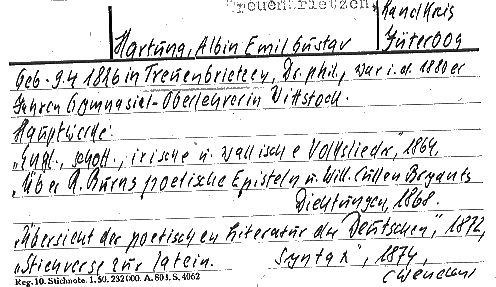 Treuenbrietzen,
Landkreis
Hartung, Albin Emil Gustav
Jüterbog
Geb. 9.4 1826 in Treuenbrietzen, Dr. phil., war i. d. 1880er
Jahren Gymnasial-Oberlehrer in Wittstock.
Hauptwerke:
"Engl., schott., irische u. wallische Volkslieder", 1864,
"Über R. Burns poetische Episteln u. Will. Cullen Bryants
Dichtungen, 1868.
"Übersicht der poetischen Literatur der Deutschen", 1872,
"Stichverse zur latein. Syntax", 1874,
Reg. 10. Stichnote. 1. 50. 232000. A. 803. S. 4062